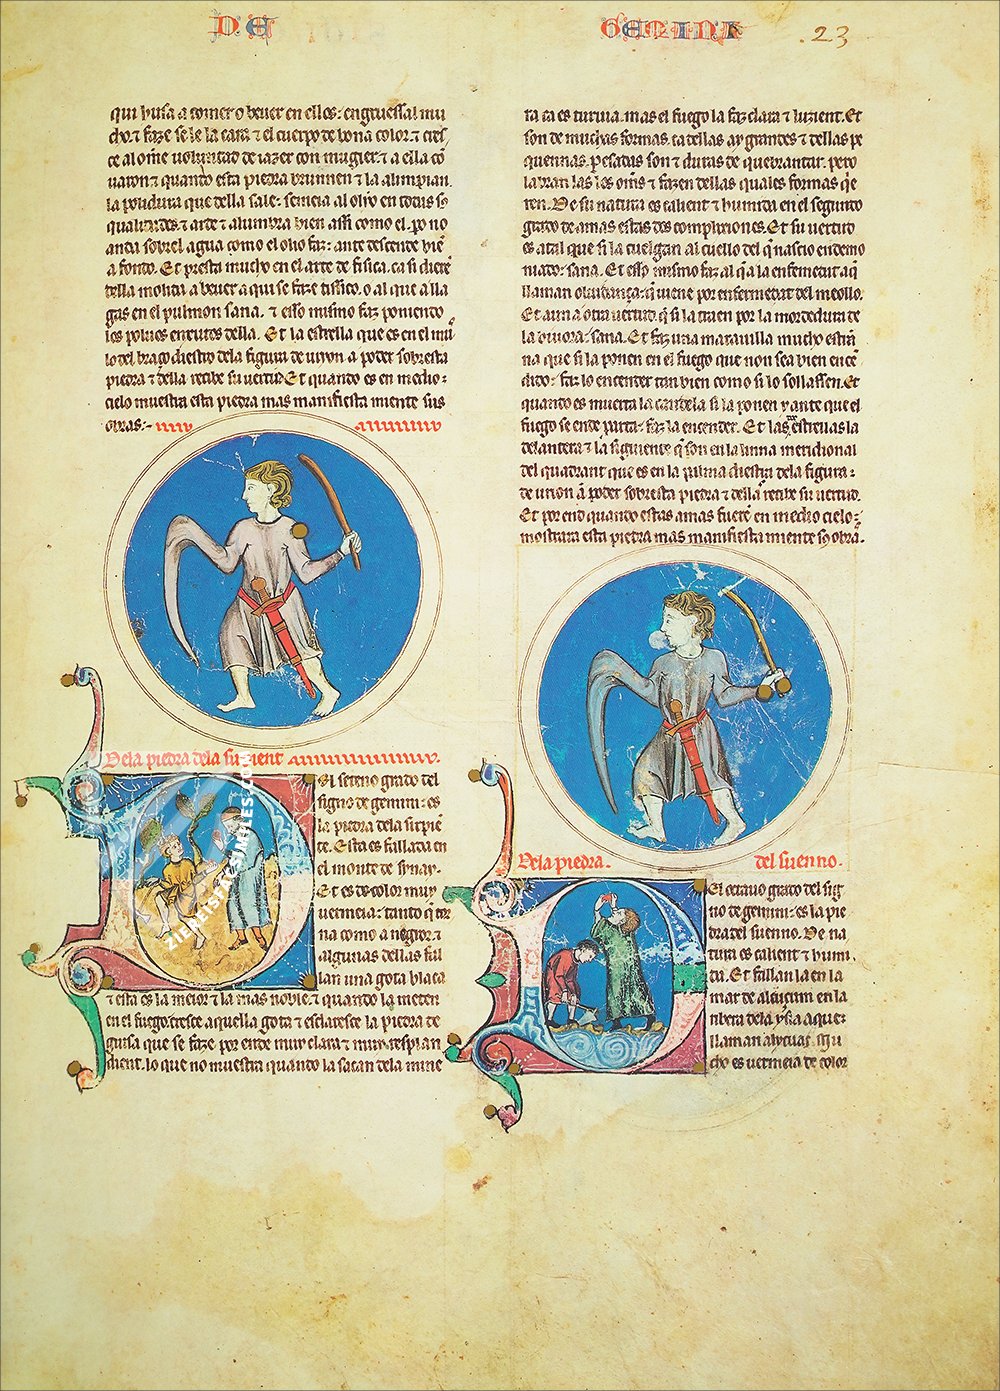 DE GEMINI .23
qui husa a comer o beuer en ellos: engruessal mu
cho. ⁊ faze se le la cara ⁊ el cuerpo de bona color. ⁊ cres
ce al ome uoluntad de iazer con mugier. ⁊ a ella cõ
uaron ⁊ quando esta piedra brunnen ⁊ la alimpian.
la poridura que della sale: semeia al olio en todas sꝯ
qualidades. ⁊ arde ⁊ alumbra bien assi como el. po no
anda sobrel agua como el olio faz: ante descende biẽ
a fondo. Et presta mucho en el arte de fisica. ca si dierẽ
della molida a beuer a qui se faze tissico. o al que a lla
gas en el pulmon sana. ⁊ esso mismo faz poniendo
los poluos en cutos della. Et la estrella que es en el mus
lo del braço diestro dela figura de urion a poder sobresta
piedra ⁊ della recibe su uertud Et quando es en medio
cielo muestra esta piedra mas manifiesta miente sus
obras:-
Dela piedra dela serpient
Del seteno grado del
signo de gemini: es
la piedra dela serpiẽ
te. Esta es fallada en
el monte de synay.
Et es de color muy
uermeia: tanto q̃ tor
na como a negror. ⁊
algunas dellas fal
lan una gota blaca
⁊ esta es la meior ⁊ la mas noble. ⁊ quando la meten
en el fuego. cresce aquella gota ⁊ esclaresce la piedra de
guisa que se faze por ende muy clara ⁊ muy resplan
dient. lo que no muestra quando la sacan dela mine
ra ca es turuia. mas el fuego la faz clara ⁊ luzient. Et
son de muchas formas. ca dellas ay grandes ⁊ dellas pe
quennas. Pesadas son ⁊ duras de quebrantar. pero
labran las los om̃s ⁊ fazen dellas quales formas q̃e
ren. De su natura es calient ⁊ humida en el segundo
grado de amas estas dos complexiones. Et su uertud
es atal que si la cuelgan al cuello del q̃ nascio endemo
niado: sana. Et esso mismo faz al q̃ a la enfermedat aq̃
llaman oluidança: q̃ uiene por enfermedat del meollo.
Et aun a otra uertud. q̃ si la traen por la mordedura de
la biuora: sana. Et faz una marauilla mucho estrãn
na que si la ponen en el fuego que non sea bien encẽ
dido: faz lo encender tan bien como si lo sollassen. Et
quando es muerta la candela si la ponen y ante que el
fuego se ende parta: faz la encender. Et las estrellas la
delantera ⁊ la siguiente q̃ son en la linna meridional
del quadrant que es en la palma diestra dela figura
de urion ã poder sobresta piedra ⁊ della recibe su uertud.
Et por end quando estas amas fuerẽ en medio cielo:
mostrara esta piedra mas manifiesta miente sꝯ obras.
Dela piedra. del suenno.
Del octauo grado del sig
no de gemini: es la pie
dra del suenno. De na
tura es calient ⁊ humi
da. Et fallan la en la
mar de alçuçum en la
ribera dela ysla aque
llaman alycuas. Mu
cho es uermeia de color
ZIEREIS FACSIMILES.COM